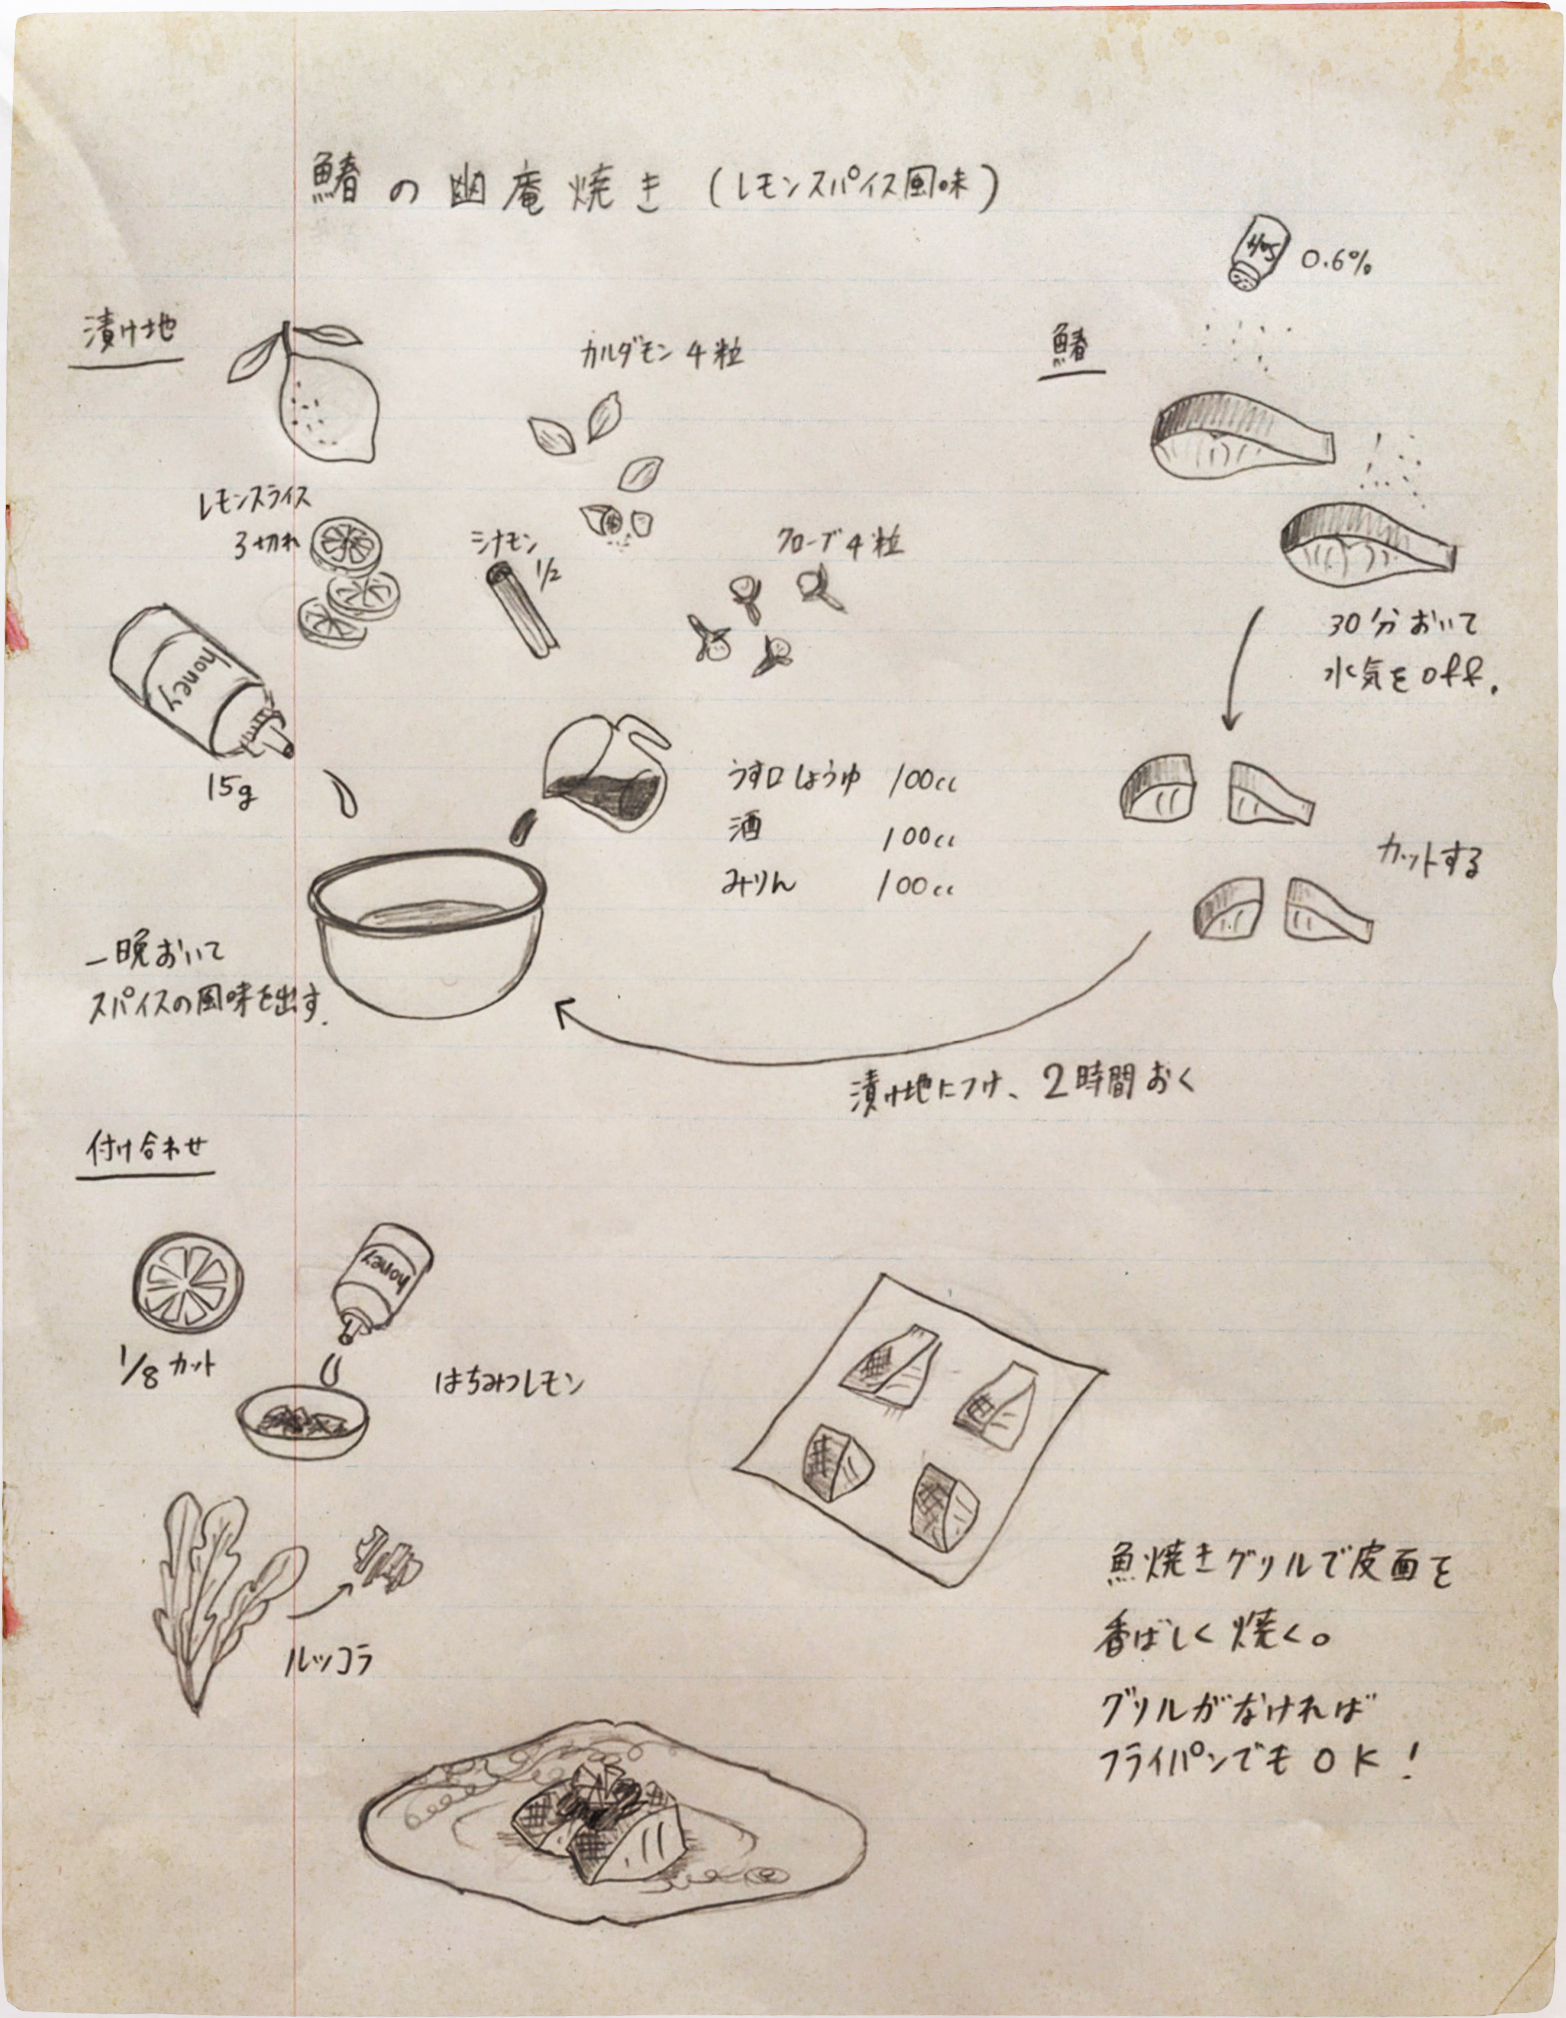 鰆の幽庵焼き(レモンスパイス風味)
漬け地
レモンスライス
3切れ
カルダモン 4粒
シナモン
1/2
クローブ4粒
honey
15g
うす口しょうゆ 100cc
酒 100cc
みりん 100cc
一晩おいて
スパイスの風味を出す.
鰆
Salt
0.6%
30分おいて
水気をoff.
カットする
漬け地につけ、2時間おく
付け合わせ
1/8カット
honey
はちみつレモン
ルッコラ
魚焼きグリルで皮面を
香ばしく焼く。
グリルがなければ
フライパンでもOK!